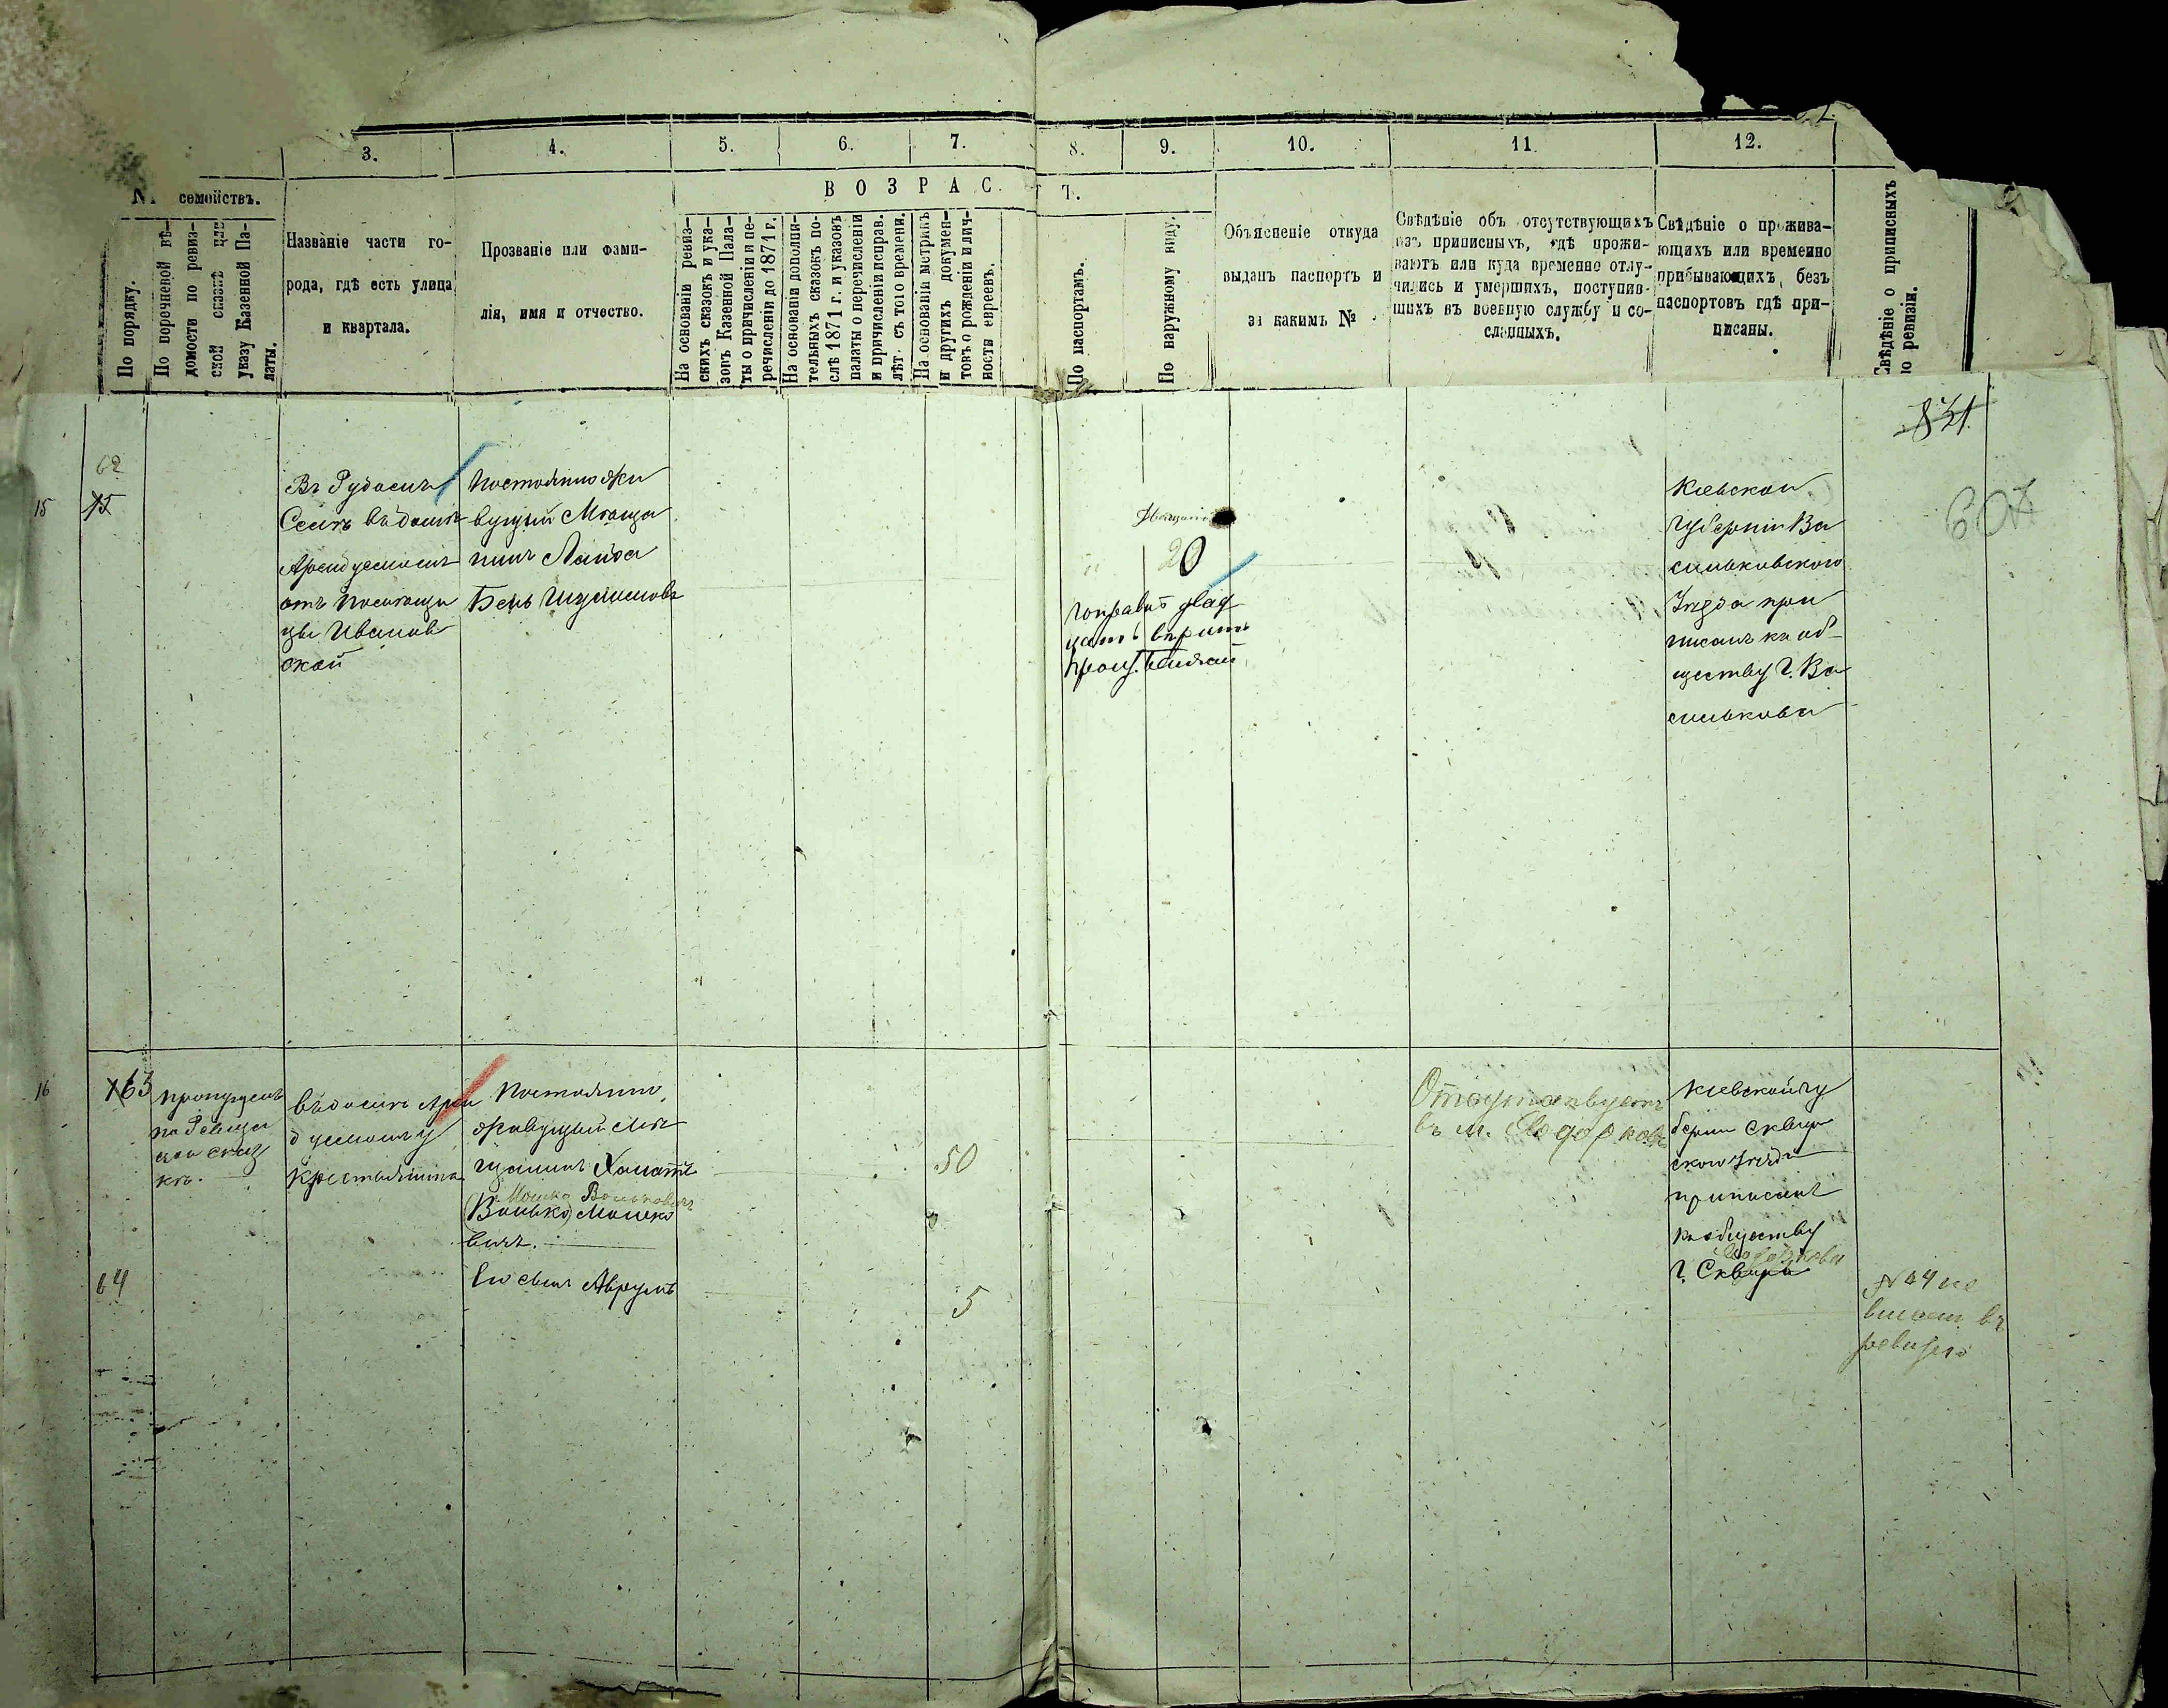 3.
4.
5.
6.
7.
8.
9.
10.
11.
12.
№ семействъ.
По порядку.
По поречневой вѣ-
домости по ревиз-
ской сказкѣ или
указу Казенной Па-
латы.
Названіе части го-
рода, гдѣ есть улица
и квартала.
Прозваніе или фами-
лія, имя и отчество.
ВОЗРАСТ.
На основаніи ревиз-
скихъ сказокъ и ука-
зовъ Казенной Пала-
ты о причисленіи и пе-
речисленіи до 1871 г.
На основаніи дополни-
тельныхъ сказокъ по-
слѣ 1871 г. и указовъ
палаты о перечисленіи
и причисленіи исправ.
лѣт. съ того времени.
На основаніи метрикъ
и другихъ докумен-
товъ о рожденіи и лич-
ности евреевъ.
По паспортамъ.
По наружному виду.
Объясненіе откуда
выданъ паспортъ и
за какимъ №
Свѣдѣніе объ отсутствующихъ
изъ приписныхъ, гдѣ прожи-
ваютъ или куда временно отлу-
чились и умершихъ, поступив-
шихъ въ военную службу и со-
сланныхъ.
Свѣдѣніе о прожива-
ющихъ или временно
прибывающихъ, безъ
паспортовъ гдѣ при-
писаны.
Свѣдѣніе о приписныхъ
по ревизіи.
831
607
62
15
15
Въ
Селѣ въ домѣ
от помѣщи
цы Иванов
ской
Постоянно жи
вущій Мѣща
нинъ Лейба
Беръ
20
Кіевской
Губерніи Ва
сильковского
Уѣзда при
писанъ къ об-
ществу г. Ва
силькова
16
63
пропущенъ
по Ревиз
ской сказ
кѣ.
въ домѣ
крестьянина
Постоянно
живущій Мѣ
щанинъ
Мошко Вольковичъ
(Волько) Мошко
вичъ.
50
Отсутствуетъ
въ м. Ходорковѣ
Кіевской гу
берніи Сквир
ского Уѣзда
приписанъ
к обществу
Ходоркова
г. Сквира
64
Его сынъ Аврумъ
5
№ 64 не
вписан въ
ревизію